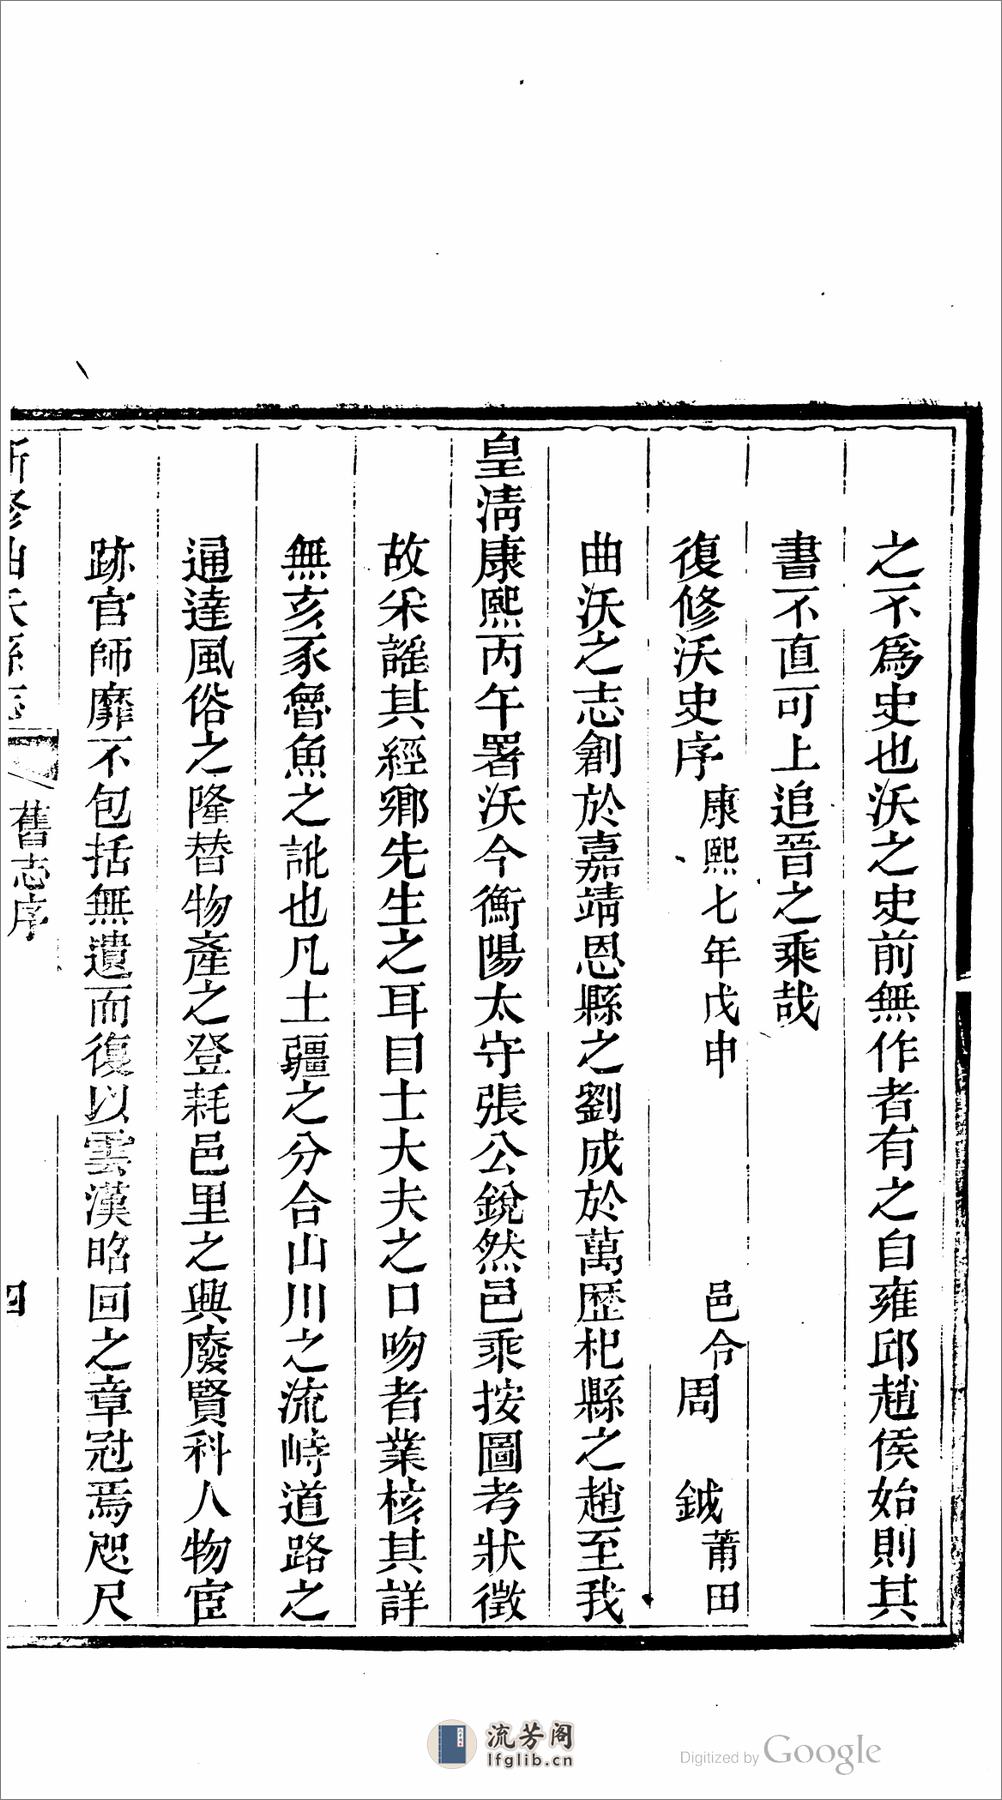 之不爲史也沃之史前無作者有之自雍邱趙侯始則其
書不直可上追晉之乘哉
復修沃史序 康熙七年戊申 邑令周 鉞莆田
曲沃之志創於嘉靖恩縣之劉成於萬歷杞縣之趙至我
皇淸康熙丙午署沃今衡陽太守張公銳然邑乘按圖考狀徵
故采謠其經鄉先生之耳目士大夫之口吻者業核其詳
無亥豕魯魚之訛也凡土疆之分合山川之流峙道路之
通達風俗之隆替物產之登耗邑里之興廢賢科人物宦
跡官師靡不包括無遺而復以雲漢昭回之章冠焉咫尺
新修曲沃縣志 舊志序 四
流芳阁
lfglib.cn
Digitized by Google